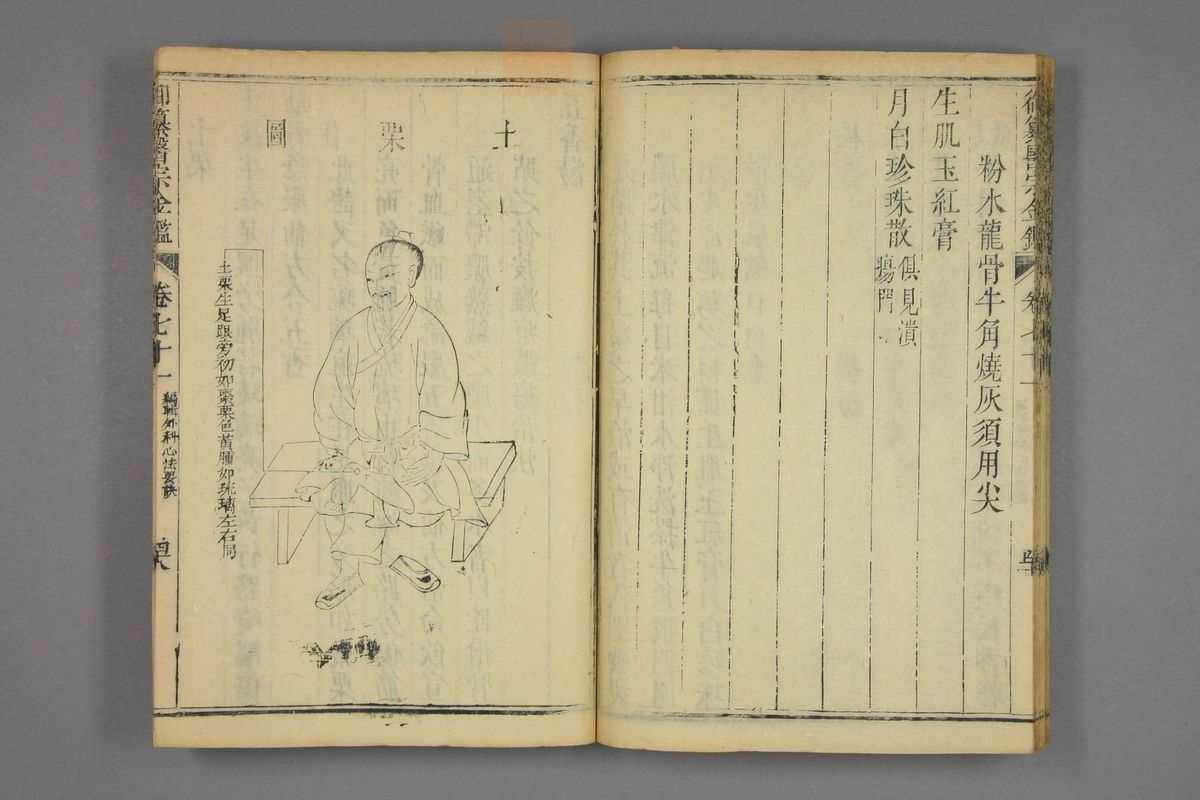 御纂醫宗金鑑
卷七十一
粉水龍骨牛角燒灰須用尖
生肌玉紅膏
月白珍珠散
俱見潰
瘍門
土栗圖
土栗生足跟旁初如棗栗色黃腫如琉璃左右同
御纂醫宗金鑑
卷七十一
編輯外科心法要訣